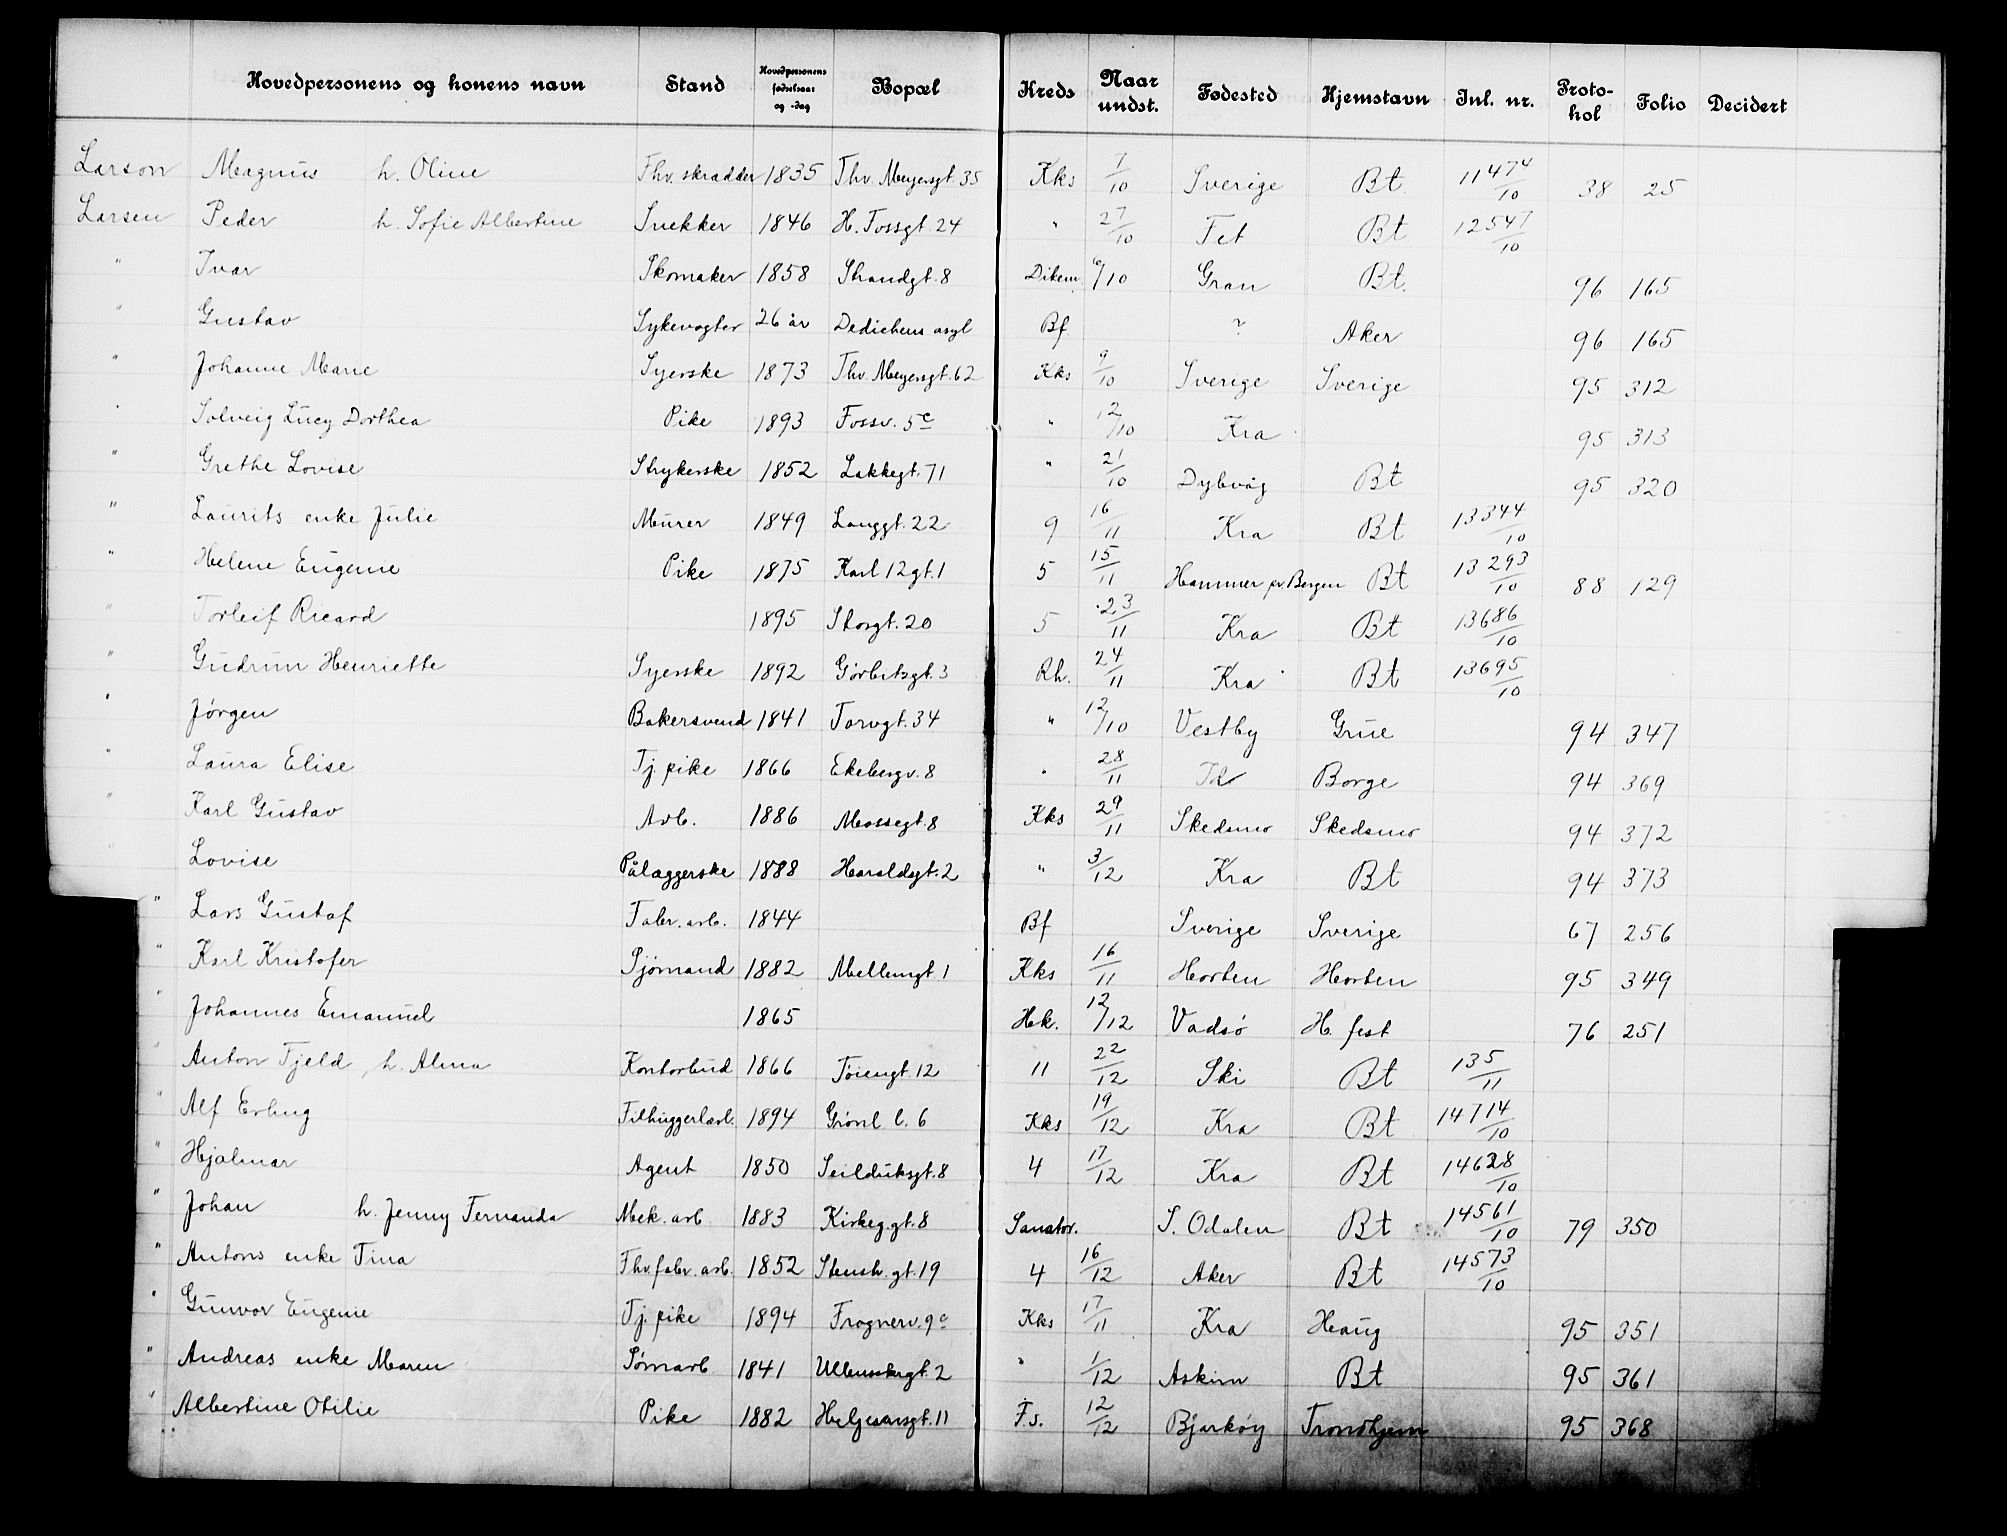 Hovedpersonens og konens navn Stand Hovedpersonens fødselsaar og -dag Bopæl Kreds Naar undst. Fødested Hjemstavn Inl. nr. Protokol Folio Decidert
Larson Magnus h. Oline Fhv. skradder 1835 Thv. Meyersgt. 35 Kks 7/10 Sverige Bt 11474/10 38 25
Larsen Peder h. Sofie Albertine Snekker 1846 H. Fossgt. 24 " 27/10 Fet Bt 12547/10
" Ivar Skomaker 1858 Strandgt. 8 Dikem. 6/10 Gran Bt. 96 165
" Gustav Sykevogter 26 år Dedichens asyl Bf ? Aker 96 165
" Johanne Marie Syerske 1873 Thv. Meyersgt. 62 Kks 9/10 Sverige Sverige 95 312
" Solveig Lucy Dorthea Pike 1893 Fossv. 5c " 12/10 Kra 95 313
" Grethe Lovise Strykerske 1852 Lakkegt. 71 " 21/10 Dybvåg Bt 95 320
" Laurits enke Julie Murer 1849 Langgt. 22 9 16/11 Kra Bt 13344/10
" Helene Eugenie Pike 1875 Karl 12 gt. 1 5 15/11 Hammer pr. Bergen Bt 13293/10 88 129
" Torleif Ricard 1895 Storgt. 20 5 23/11 Kra Bt 13686/10
" Gudrun Henriette Syerske 1892 Gørbitzgt. 3 Rh. 24/11 Kra Bt 13695/10
" Jørgen Bakersvend 1841 Torvgt. 34 " 12/10 Vestby Grue 94 347
" Laura Elise Tj. pike 1866 Ekebergv. 8 " 28/11 Id Borge 94 369
" Karl Gustav Arb. 1886 Mossegt. 8 Kks 29/11 Skedsmo Skedsmo 94 372
" Lovise Pålæggerske 1888 Haraldsgt. 2 " 3/12 Kra Bt 94 373
" Lars Gustaf Fabr. arb. 1844 Bf Sverige Sverige 67 256
" Karl Kristofer Sjømand 1882 Mellemgt. 1 Kks 16/11 Horten Horten 95 349
" Johannes Emanuel 1865 Hk. 12/12 Vadsø H. fest 76 251
" Anton Fjeld, h. Alma Kontorbud 1866 Tøiengt. 12 11 22/12 Ski Bt 135/11
" Alf Erling Filhuggerlærl. 1894 Grønl l. 6 Kks 19/12 Kra Bt 14714/10
" Hjalmar Agent 1850 Seilduksgt. 8 4 17/12 Kra Bt 14628/10
" Johan h. Jenny Fernanda Mek. arb 1883 Kirkeg. gt. 8 Sanator. S. Odalen Bt 14561/10 79 350
" Antons enke Tina Fhv. fabr. arb. 1852 Stenstr. gt. 19 4 16/12 Aker Bt 14573/10
" Gunvor Eugenie Tj. pike 1894 Frognerv. 9c Kks 17/11 Kra Haug 95 351
" Andreas enke Maren Tømarb 1841 Ullensakergt. 2 " 1/12 Askim Bt 95 361
" Albertine Otilie Pike 1882 Helgesensgt. 11 F.s. 12/12 Bjarkøy Trondhjem 95 368